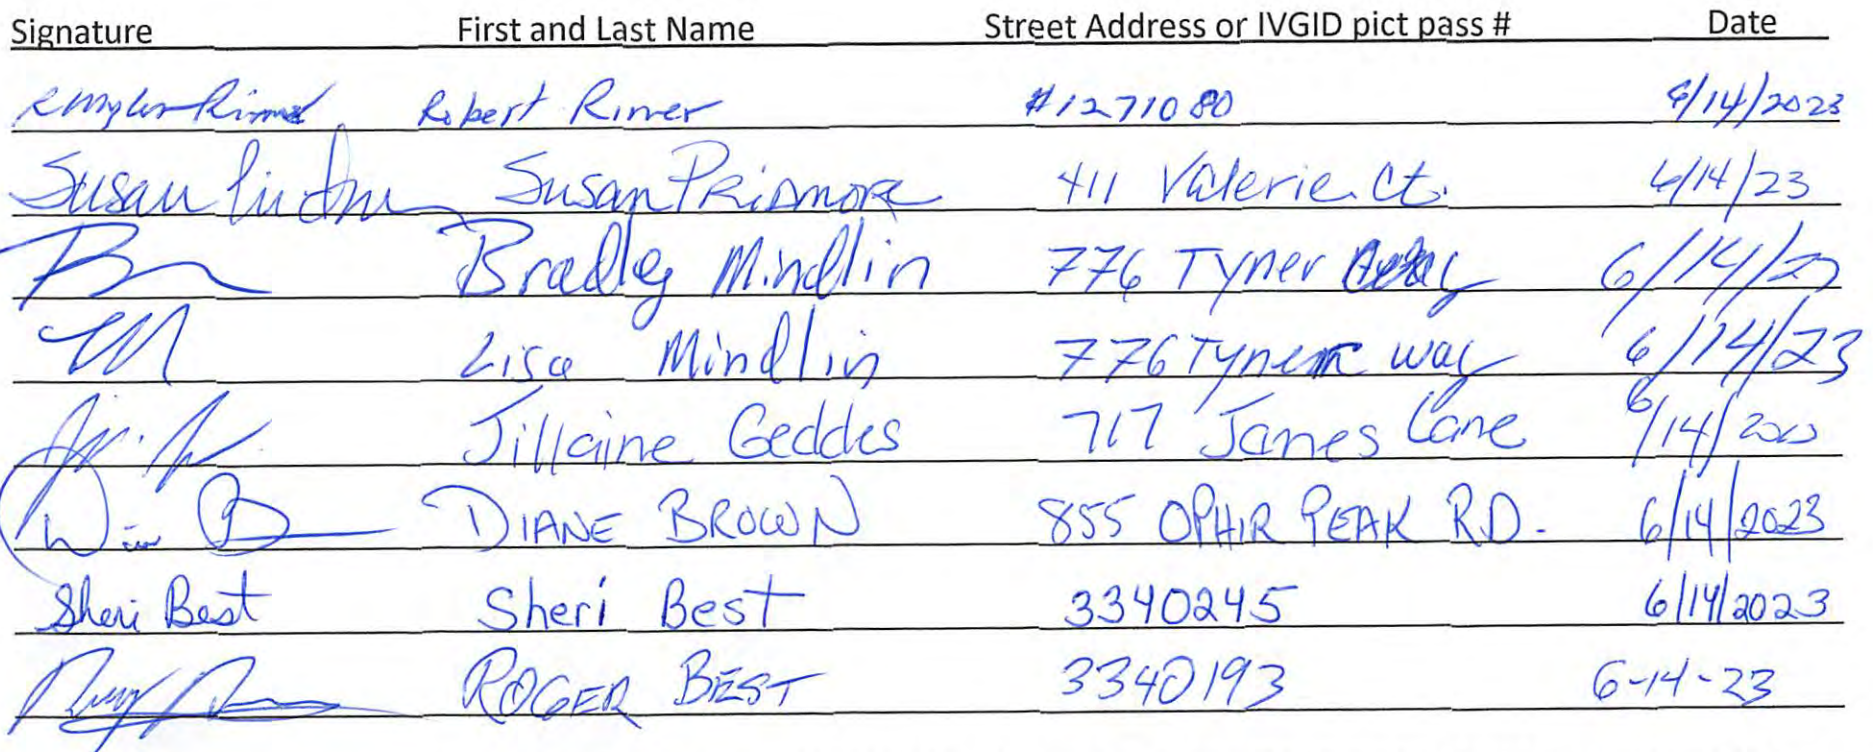 Signature First and Last Name Street Address or IVGID pict pass # Date
Robert Rimer #1271080 6/14/2023
Susan Susan PRiDMORE 411 Valerie Ct. 6/14/23
Bradley Mindlin 776 Tyner Way 6/14/23
Lisa Mindlin 776 Tyner way 6/14/23
Jillaine Geddes 717 James Lane 6/14/2023
DIANE BROWN 855 OPHIR PEAK RD. 6/14/2023
Sheri Best Sheri Best 3340245 6/14/2023
ROGER BEST 3340193 6-14-23